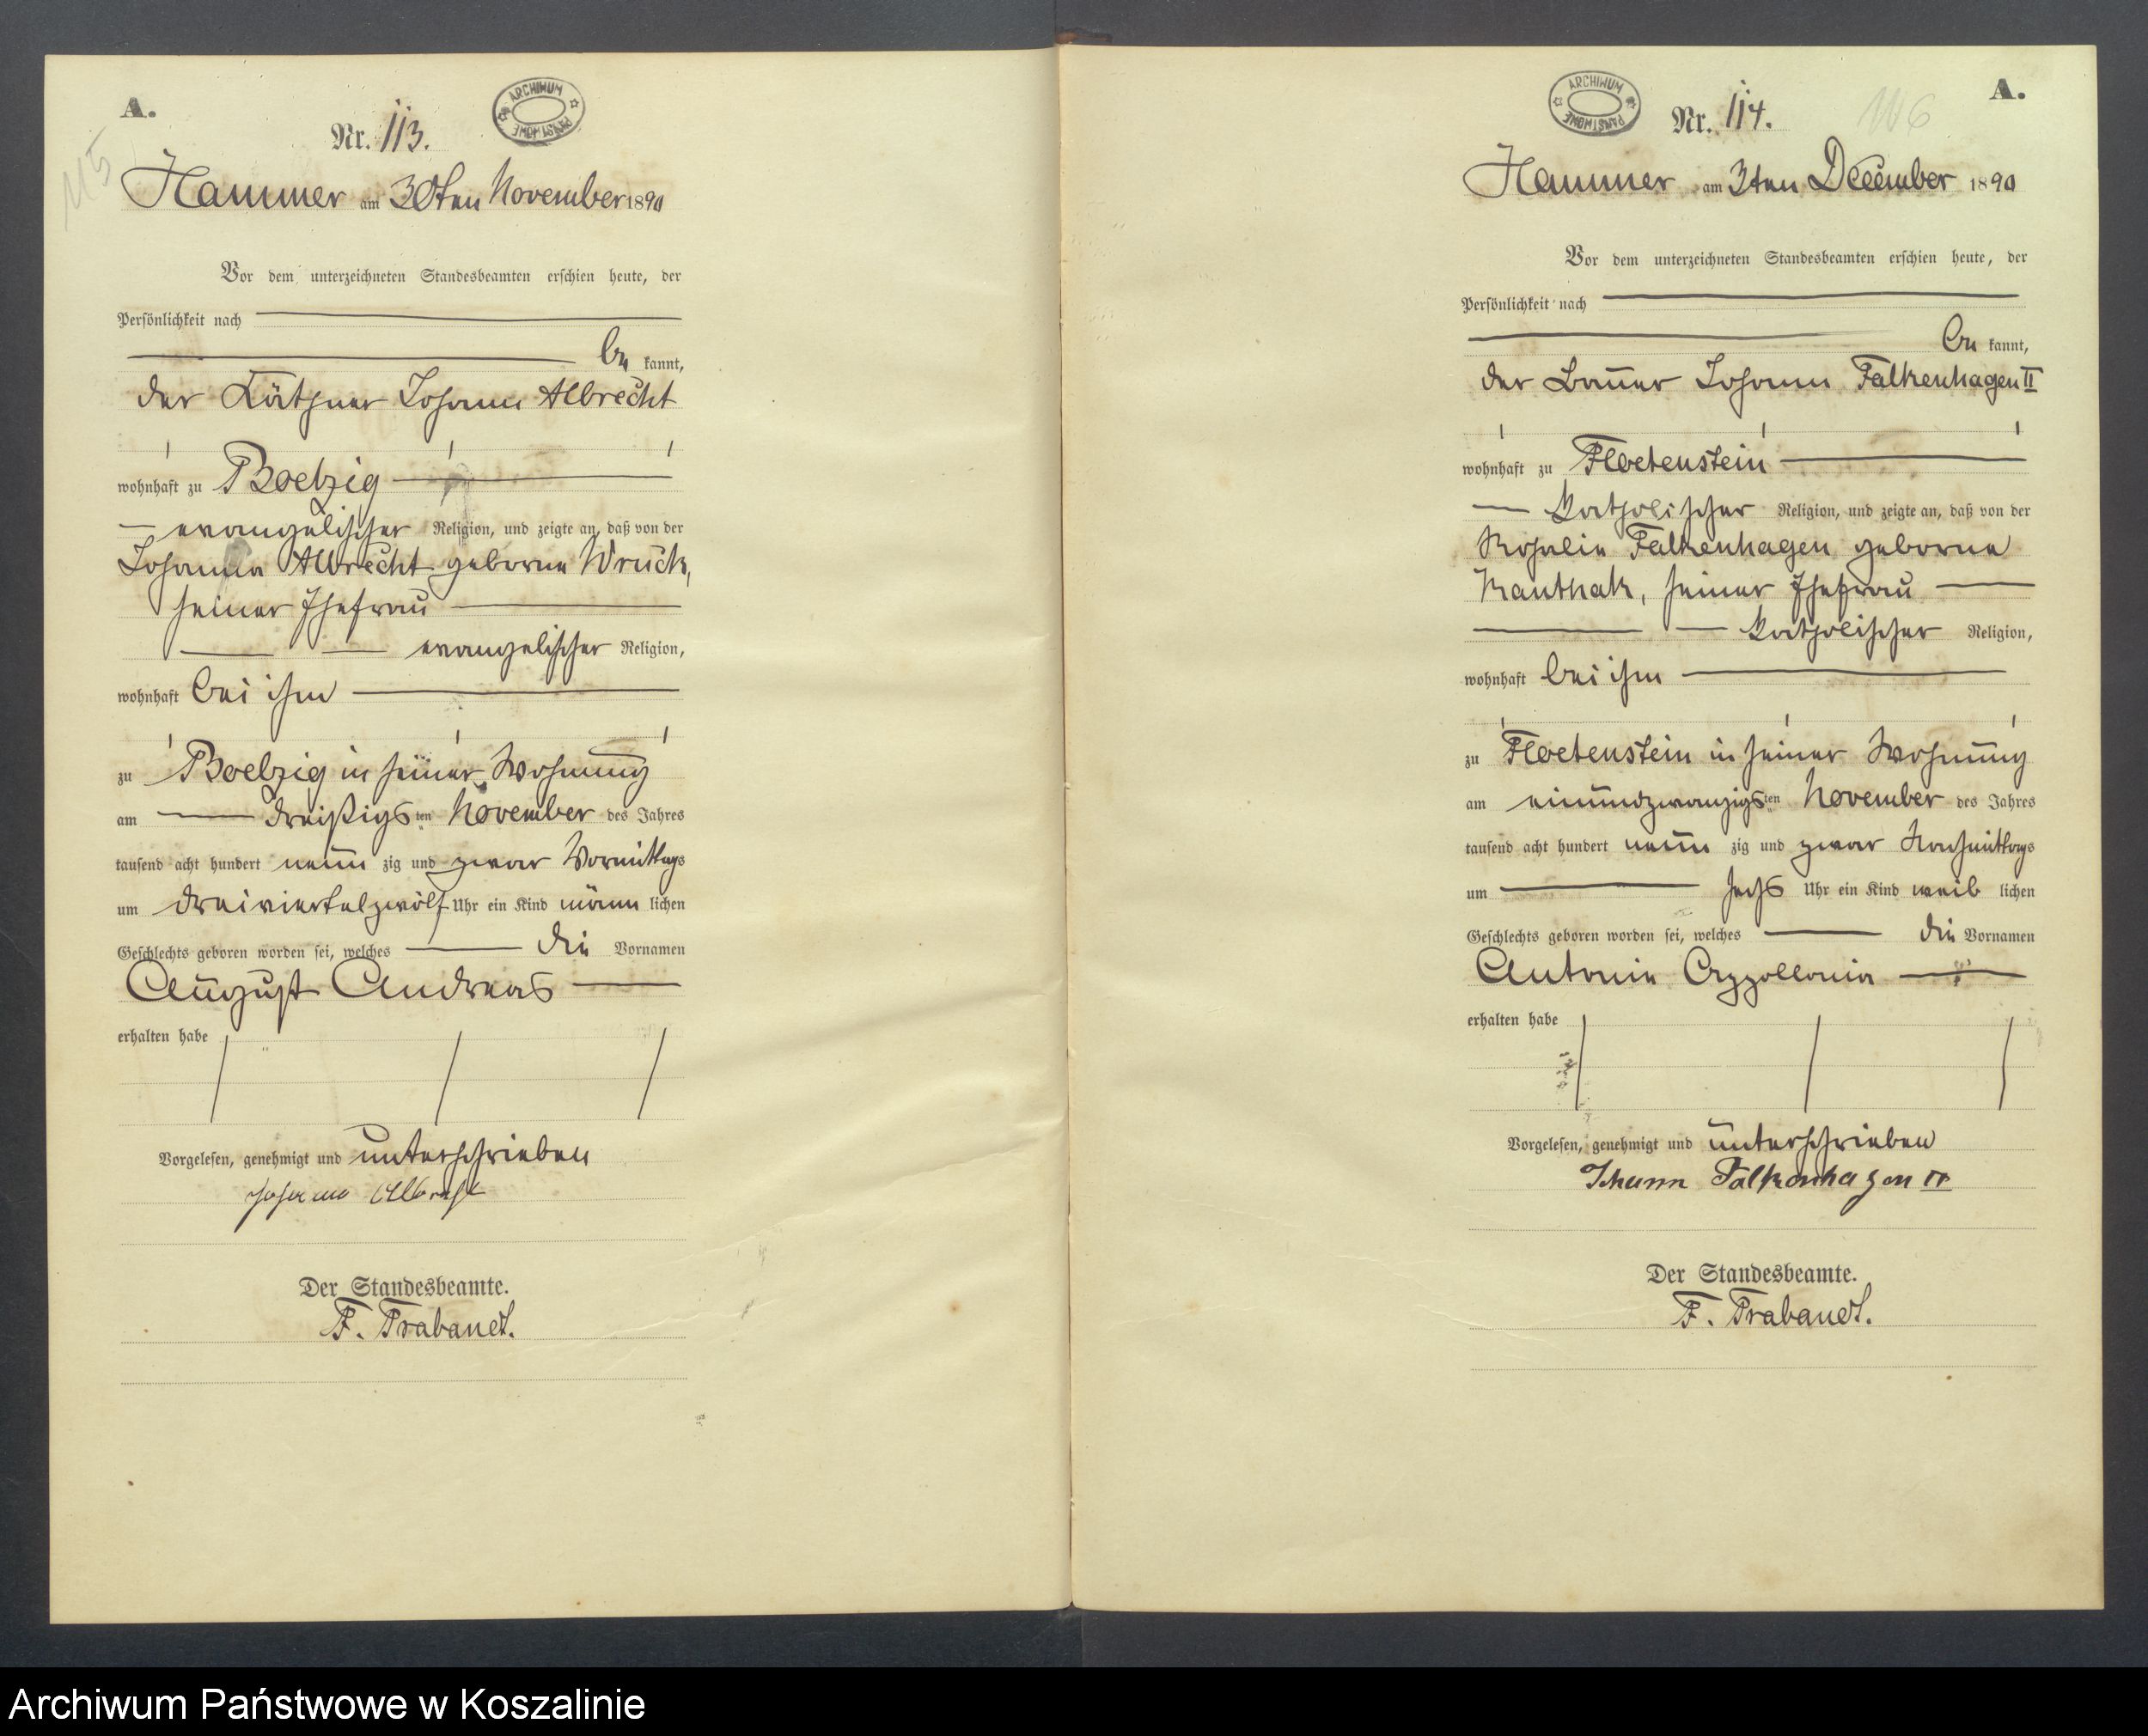 A.
Nr. 113.
ARCHIWUM PAŃSTWOWE
115
Hammer am 30ten November 1890
Vor dem unterzeichneten Standesbeamten erschien heute, der
Persönlichkeit nach
be kannt,
der Käthner Johann Albrecht
wohnhaft zu Boelzig
evangelischer Religion, und zeigte an, daß von der
Johanna Albrecht geborne Wruck,
seiner Ehefrau
evangelischer Religion,
wohnhaft bei ihm
zu Boelzig in seiner Wohnung
am dreißigsten November des Jahres
tausend acht hundert neun zig und zwar Vormittags
um dreiviertelzwölf Uhr ein Kind männ lichen
Geschlechts geboren worden sei, welches die Vornamen
August Andreas
erhalten habe
Vorgelesen, genehmigt und unterschrieben
Johann Albrecht
Der Standesbeamte.
F. Trabandt.
A.
ARCHIWUM PAŃSTWOWE
Nr. 114.
116
Hammer am 3ten December 1890
Vor dem unterzeichneten Standesbeamten erschien heute, der
Persönlichkeit nach
be kannt,
der Bauer Johann Falkenhagen II
wohnhaft zu Floetenstein
katholischer Religion, und zeigte an, daß von der
Rosalie Falkenhagen geborne
Kanthak, seiner Ehefrau
katholischer Religion,
wohnhaft bei ihm
zu Floetenstein in seiner Wohnung
am einundzwanzigsten November des Jahres
tausend acht hundert neun zig und zwar Nachmittags
um sechs Uhr ein Kind weib lichen
Geschlechts geboren worden sei, welches die Vornamen
Antonie Appollonia
erhalten habe
Vorgelesen, genehmigt und unterschrieben
Johann Falkenhagen II
Der Standesbeamte.
F. Trabandt.
Archiwum Państwowe w Koszalinie